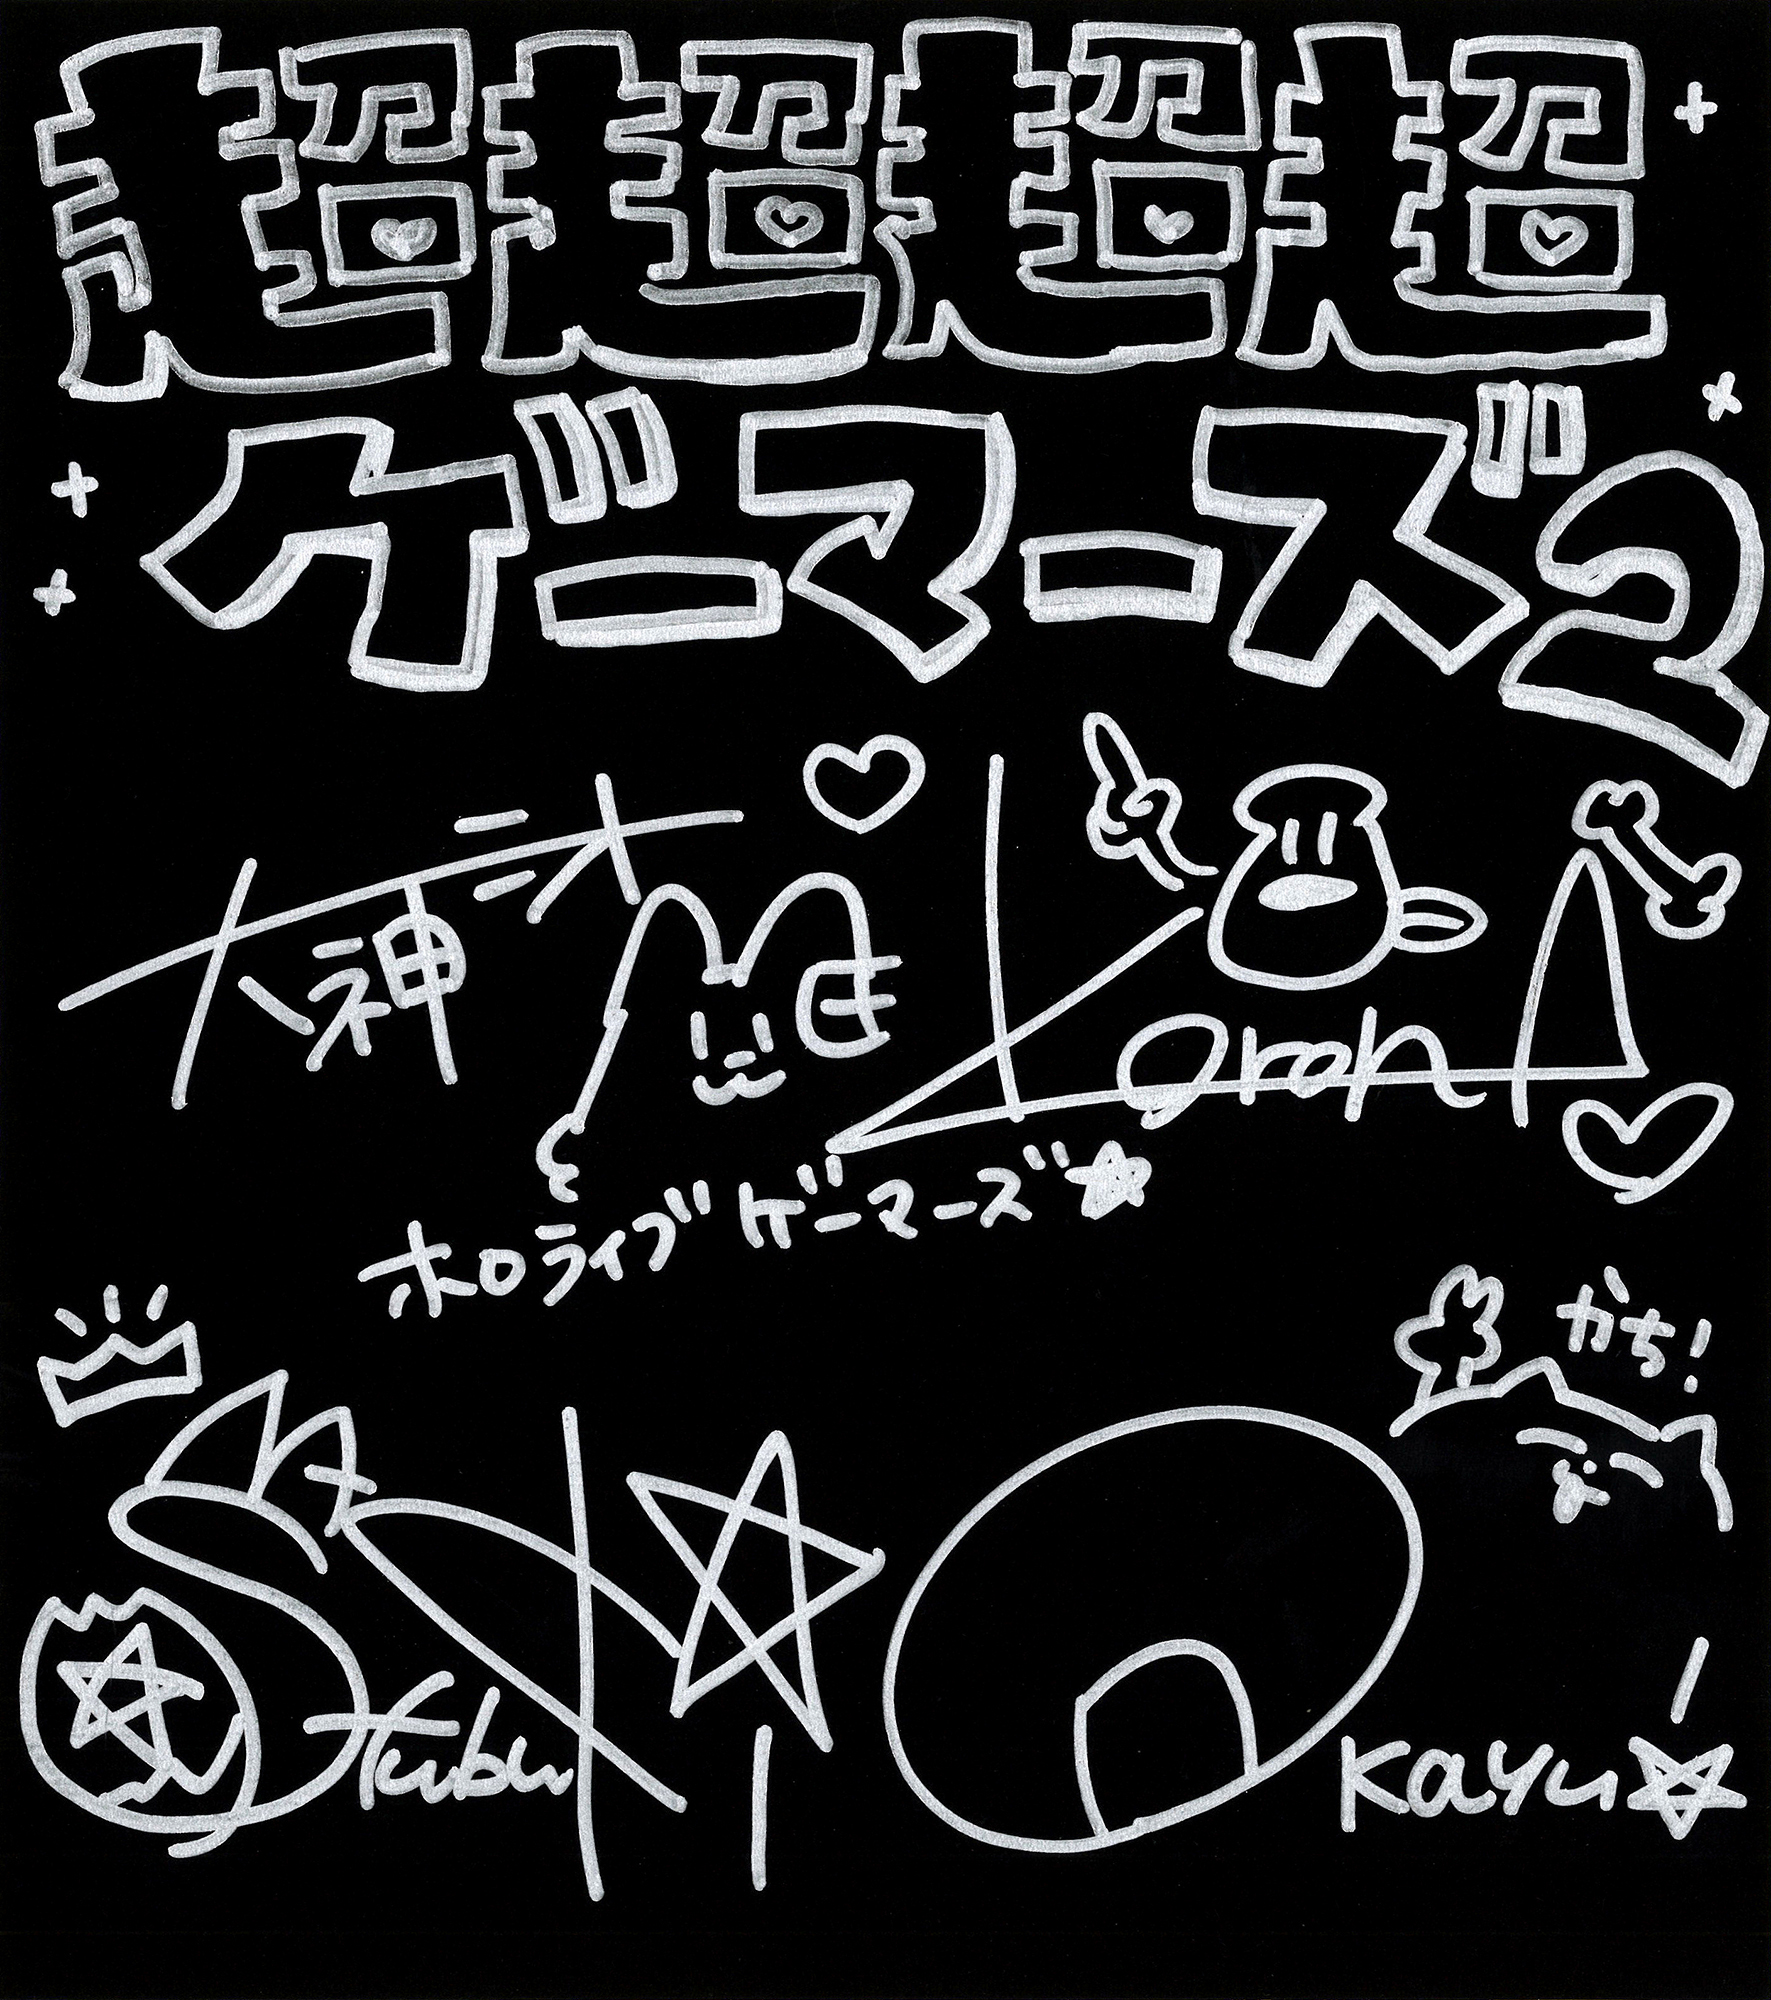 超超超超
ゲーマーズ2
大神ミオ
Korone
ホロライブゲーマーズ
かち!
Fubuki
Okayu